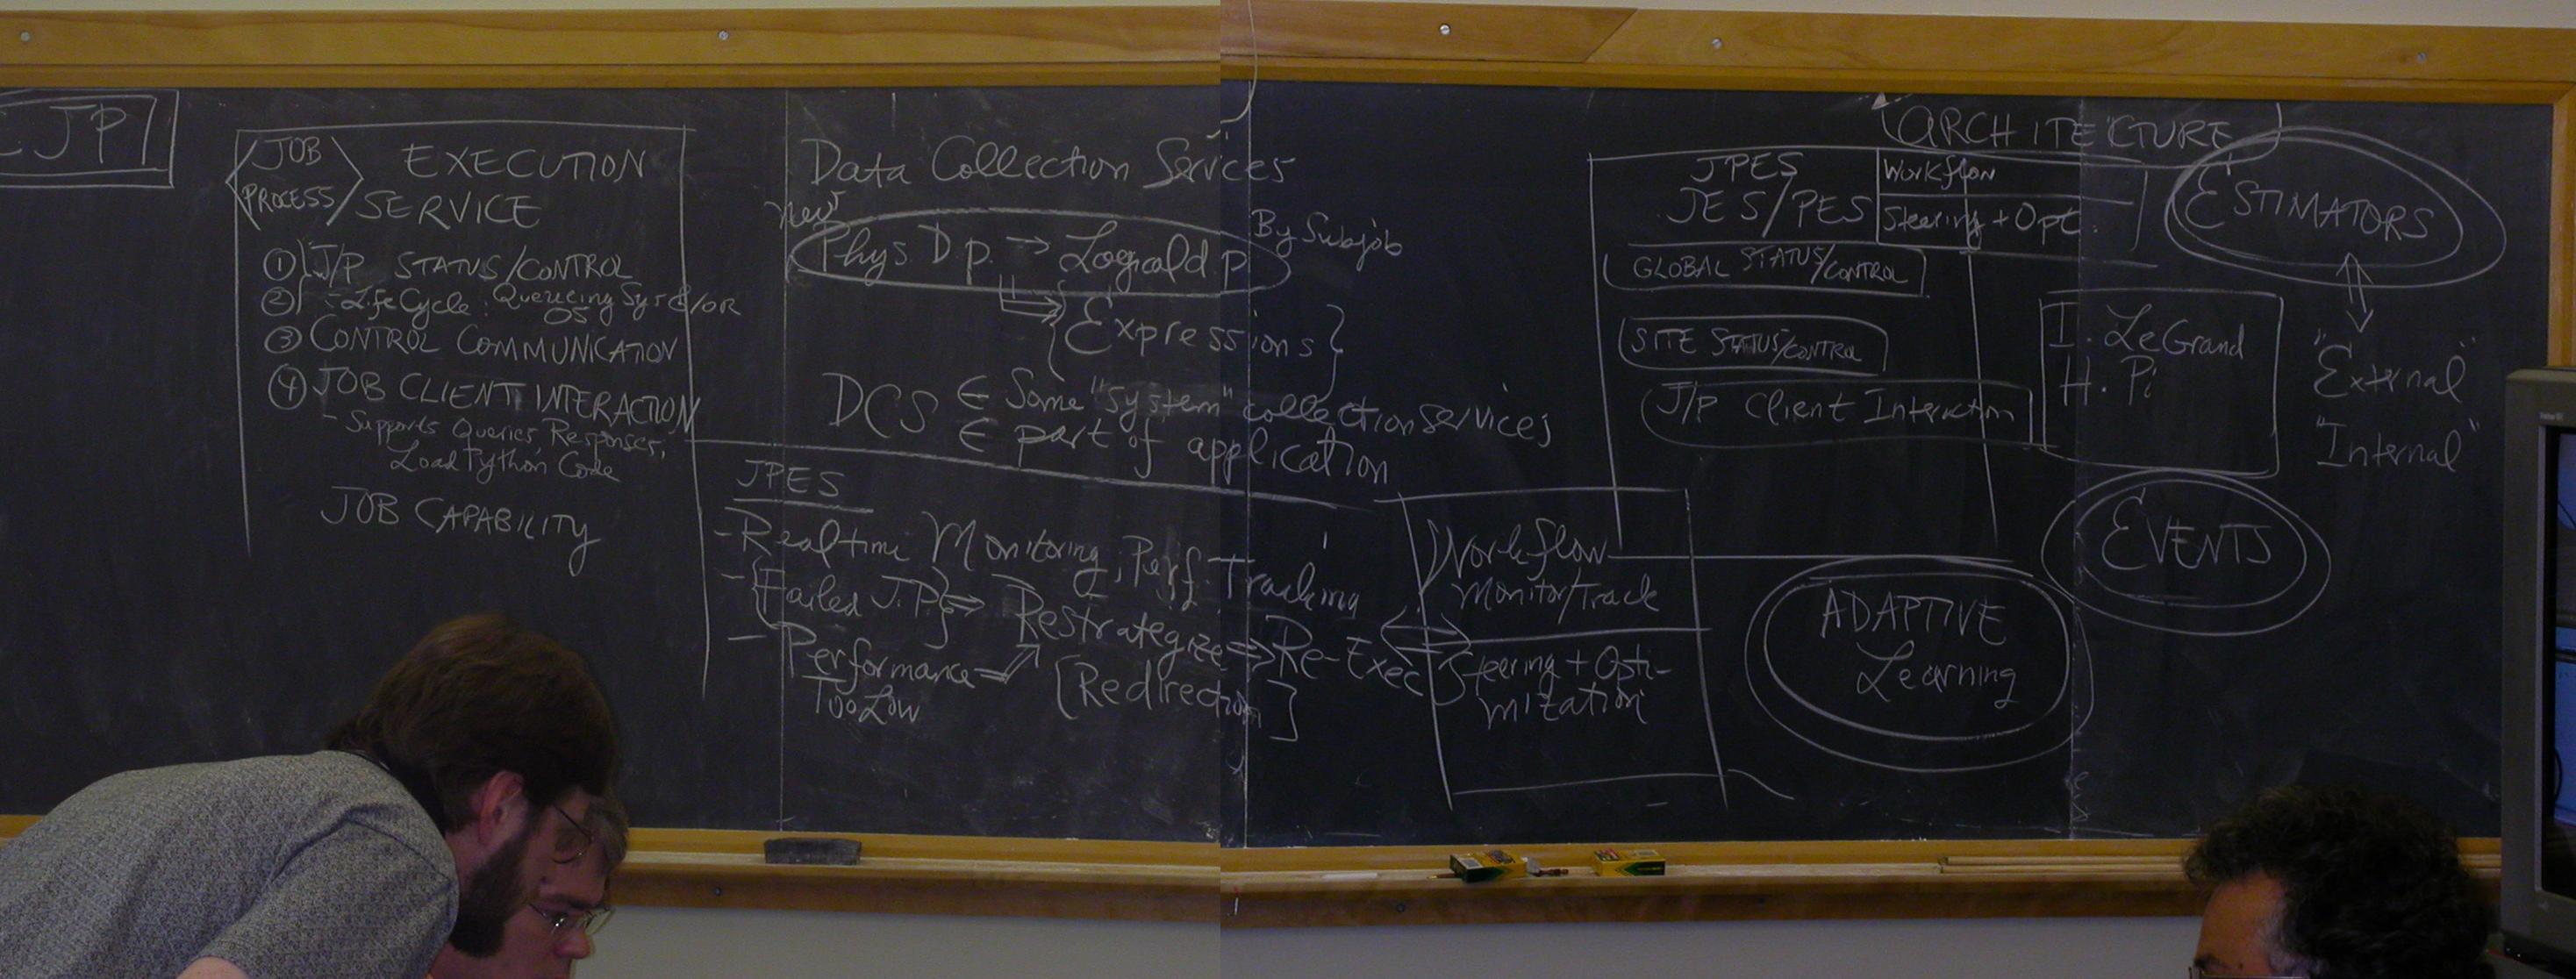 JP
JOB
PROCESS
EXECUTION
SERVICE
① J/P STATUS/CONTROL
② - LifeCycle: Queueing Sys &/OR
OS
③ CONTROL COMMUNICATION
④ JOB CLIENT INTERACTION
- Supports Queries, Responses,
Load Python Code
JOB CAPABILITY
Data Collection Services
new
Phys D p. → Logical d p
By Subjob
{Expressions}
DCS ∈ Some "system" collection services
∈ part of application
JPES
- Realtime Monitoring; Perf. Tracking
- {Failed J.P.} ⇒ Restrategize ⇒ Re-Exec
- Performance ⇒ [Redirection]
Too Low
Workflow
Monitor/Track
Steering + Opti-
mization
ARCHITECTURE
JPES
JES/PES
Workflow
Steering + Opt.
GLOBAL STATUS/CONTROL
SITE STATUS/CONTROL
J/P Client Interaction
I. LeGrand
H. Pi
ESTIMATORS
"External"
"Internal"
EVENTS
ADAPTIVE
Learning